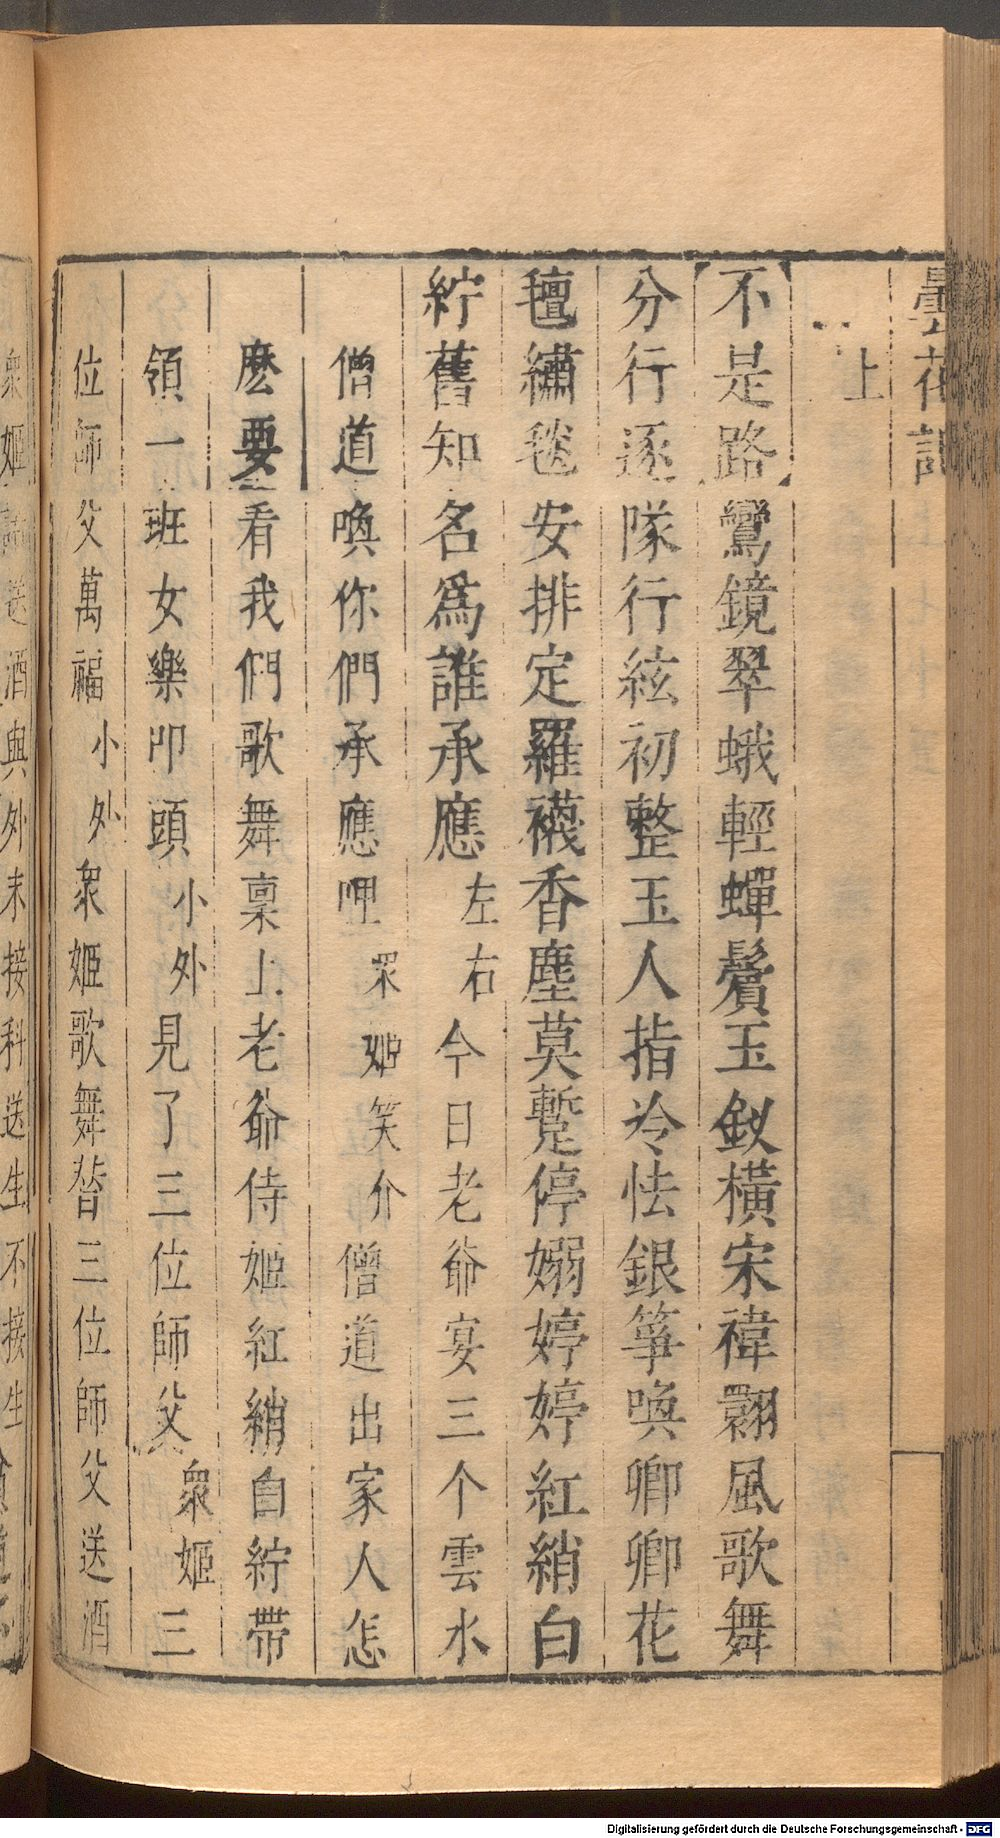 曇花記
上
【不是路】鸞鏡翠蛾輕蟬鬢玉釵橫宋禕翾風歌舞
分行逐隊行絃初整玉人指冷怯銀箏喚卿卿花
氊繡毯安排定羅襪香塵莫蹔停嫋婷婷紅綃白
紵舊知名爲誰承應左右今日老爺宴三个雲水
僧道喚你們承應呷眾姬笑介僧道出家人怎
麽要看我們歌舞稟上老爺侍姬紅綃白紵帶
領一班女樂叩頭小外見了三位師父衆姬三
位師父萬福小外衆姬歌舞畨三位師父送酒
衆姬送酒與外末接科送生不接生
Digitalisierung gefördert durch die Deutsche Forschungsgemeinschaft - DFG